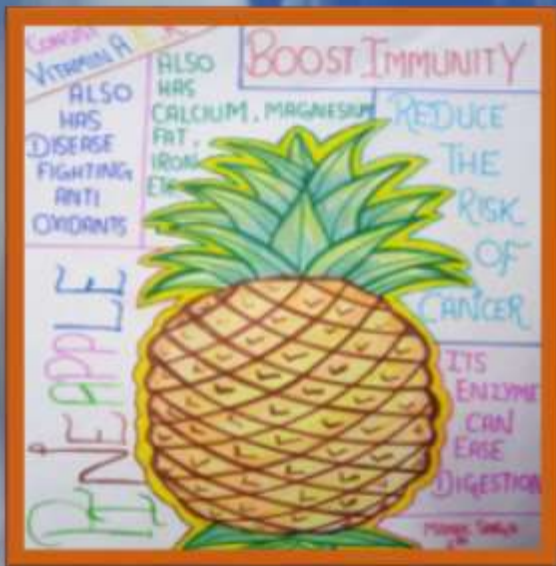 CONSIST
VITMIN A
ALSO
HAS
DISEASE
FIGHTING
ANTI
OXIDANTS
ALSO
HAS
CALCIUM, MAGNESIUM
FAT,
IRON
ETC
BOOST IMMUNITY
REDUCE
THE
RISK
OF
CANCER
ITS
ENZYME
CAN
EASE
DIGESTION
PINEAPPLE